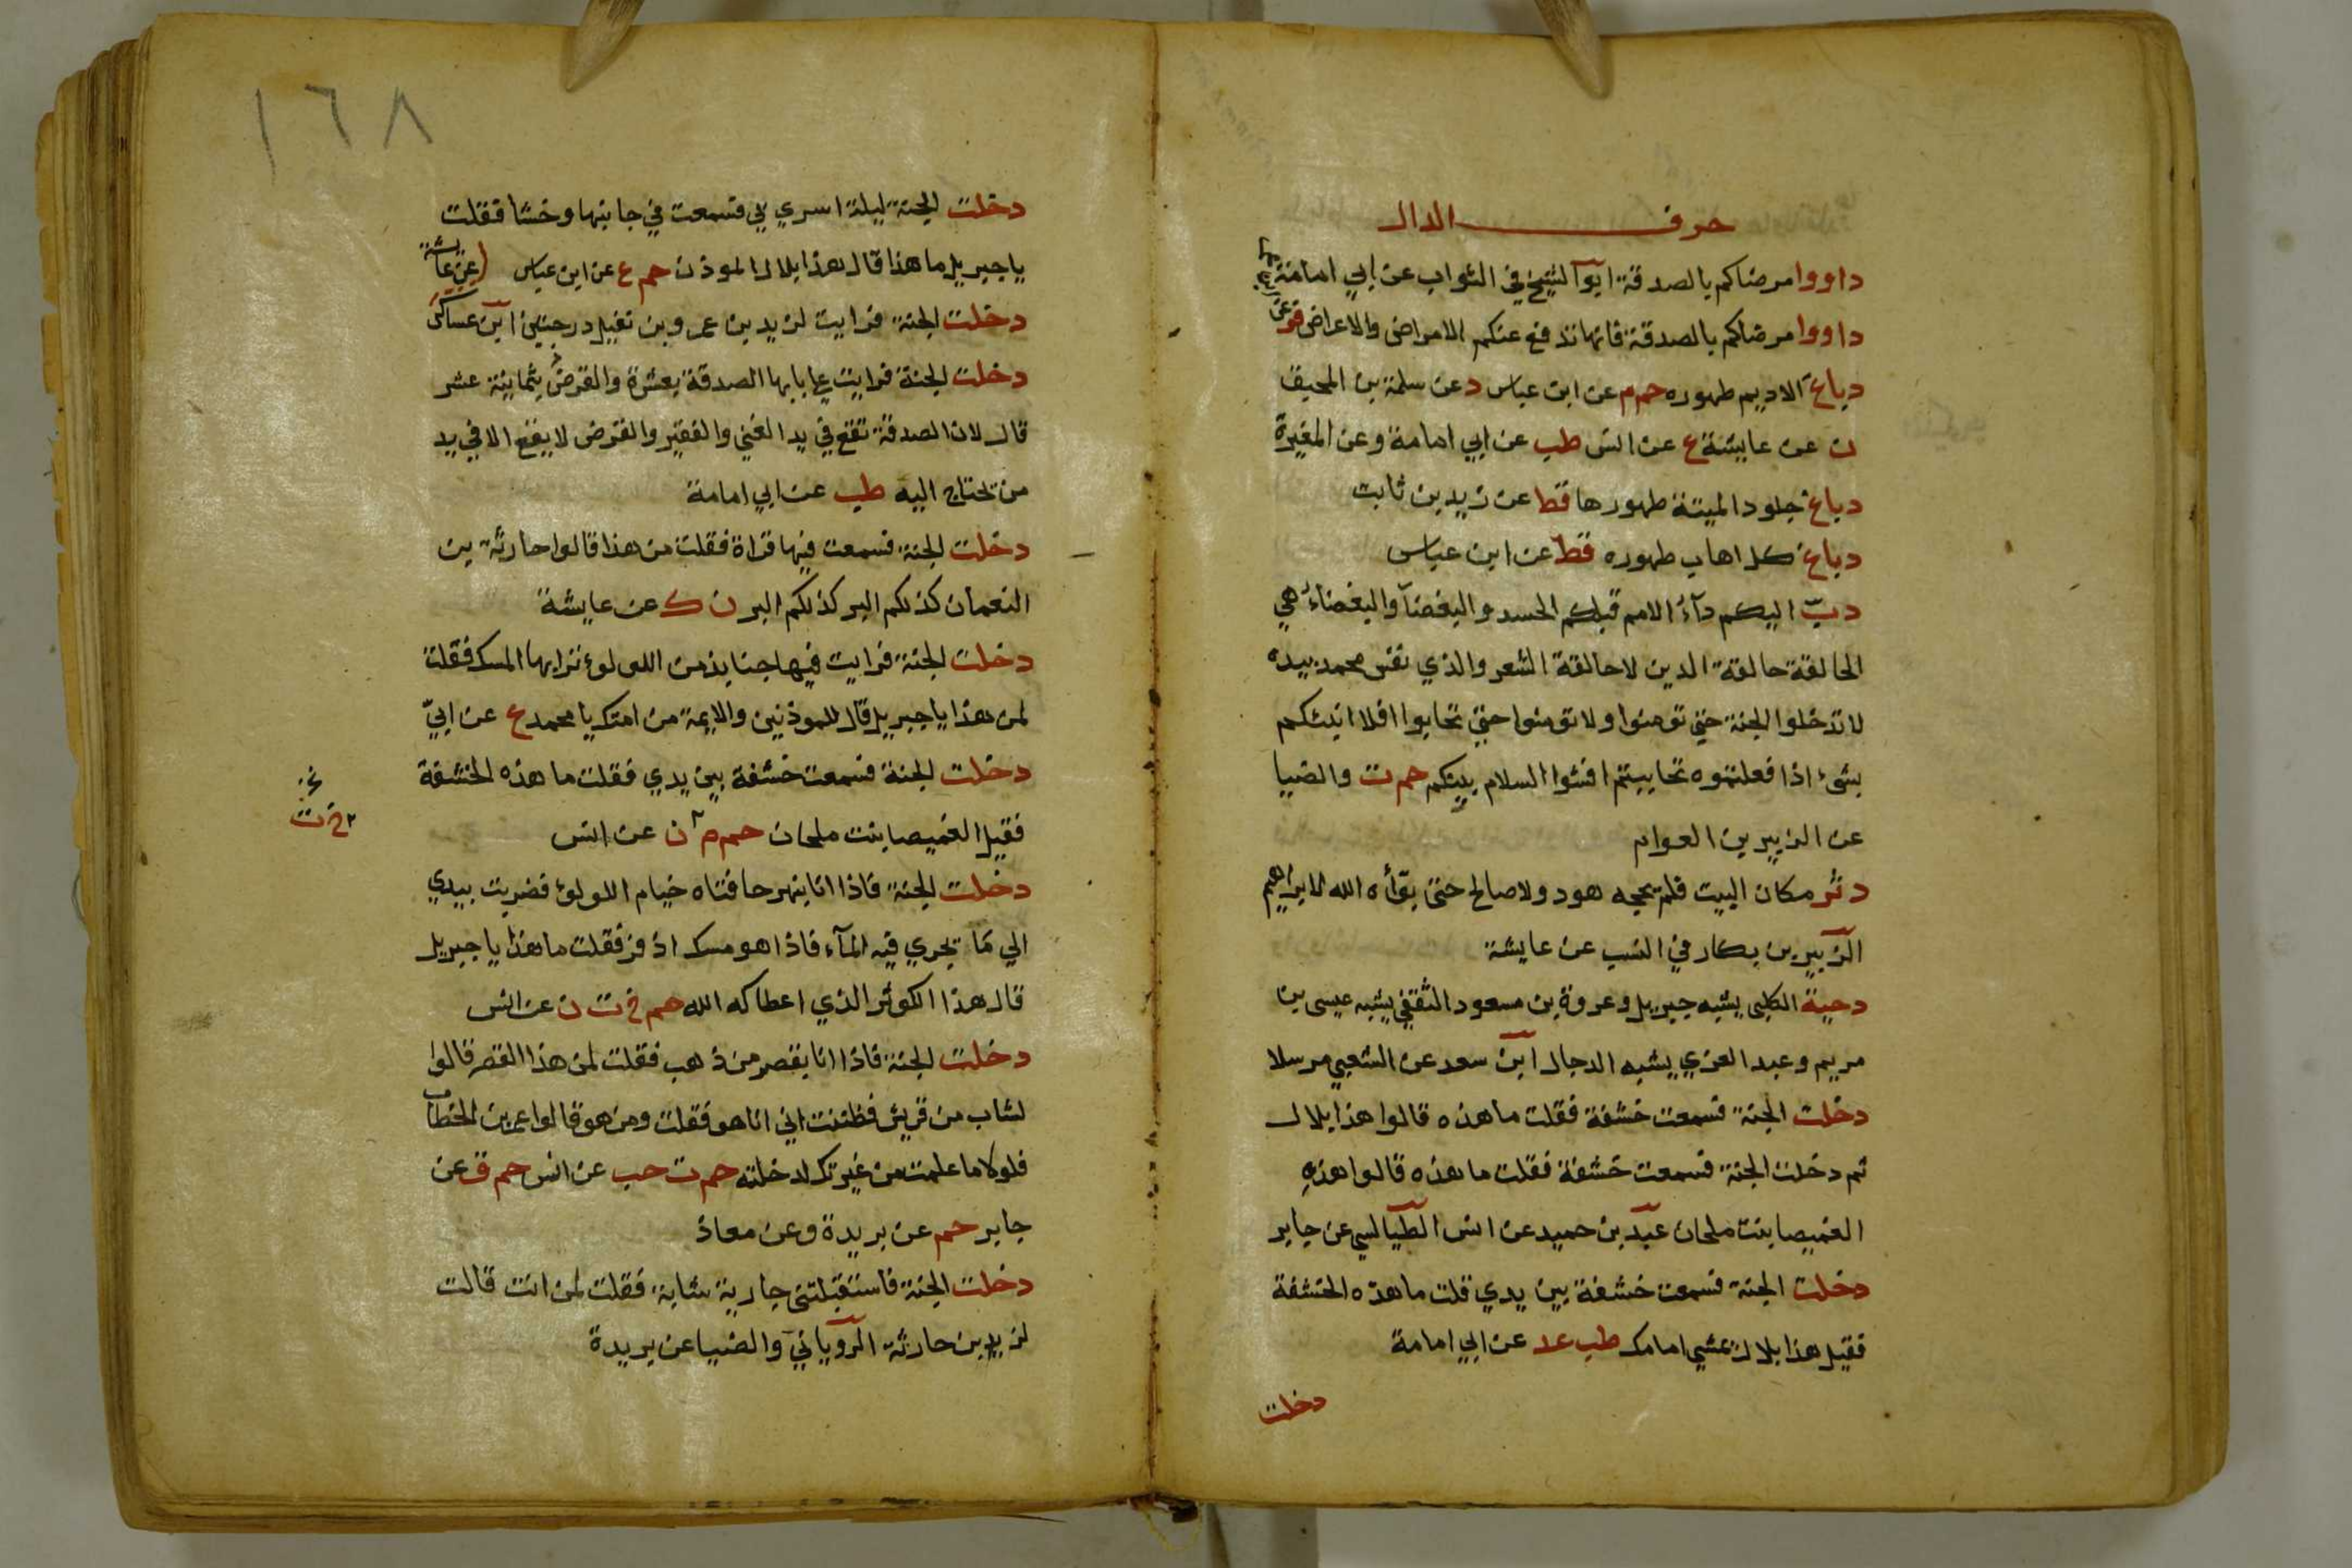 حرف الدال
داووا مرضاكم بالصدقة ابو الشيخ في الثواب عن ابي امامة
داووا مرضاكم بالصدقة فانها تدفع عنكم الامراض والاعراض فر عن
دباغ الاديم طهوره حم م عن ابن عباس د عن سلمة بن المحبق
ن عن عايشة ع عن انس طب عن ابي امامة وعن المغيرة
دباغ جلود الميتة طهورها قط عن زيد بن ثابت
دباغ كل اهاب طهوره قط عن ابن عباس
دبّ اليكم دآء الامم قبلكم الحسد والبغضآ والبغضاء هي
الحالقة حالقة الدين لا حالقة الشعر والذي نفس محمد بيده
لا تدخلوا الجنة حتى تومنوا ولا تومنوا حتى تحابوا افلا انبئكم
بشئ اذا فعلتموه تحاببتم افشوا السلام بينكم حم ت والضيا
عن الزبير بن العوام
دثر مكان البيت فلم يحجه هود ولا صالح حتى بوّأه الله لابراهيم
الزبير بن بكار في النسب عن عايشة
دحية الكلبى يشبه جبريل وعروة بن مسعود الثقفي يشبه عيسى بن
مريم وعبد العزي يشبه الدجال ابن سعد عن الشعبي مرسلا
دخلت الجنة فسمعت خشفة فقلت ما هذه قالوا هذا بلال
ثم دخلت الجنة فسمعت خشفة فقلت ما هذه قالوا هذه
الغميصا بنت ملحان عبد بن حميد عن انس الطيالسي عن جابر
دخلت الجنة فسمعت خشفة بين يدي قلت ما هذه الخشفة
فقيل هذا بلال عشي امامك طب عد عن ابي امامة
دخلت
١٦٨
دخلت الجنة ليلة اسري بي فسمعت في جانبها وخشا فقلت
يا جبريل ما هذا قال هذا بلال الموذن حم ع عن ابن عباس (عن عايشة
دخلت الجنة فرايت لزيد بن عمرو بن نفيل درجتين ابن عساكر
دخلت الجنة فرايت على بابها الصدقة بعشرة والقرض بثمانية عشر
قال لان الصدقة تقع في يد الغني والفقير والقرض لا يقع الا في يد
من تحتاج اليه طب عن ابي امامة
دخلت الجنة فسمعت فيها قراة فقلت من هذا قالوا حارثة بن
النعمان كذلكم البر كذلكم البر ن ك عن عايشة
دخلت الجنة فرايت فيها جنابذ من اللولوء ترابها المسك فقلت
لمن هذا يا جبريل قال للموذنين والايمة من امتك يا محمد ع عن ابيّ
دخلت الجنة فسمعت خشفة بين يدي فقلت ما هذه الخشفة
فقيل الغميصا بنت ملحان حم م ن عن انس
خ ت
دخلت الجنة فاذا انا بنهر حافتاه خيام اللولؤ فضربت بيدي
الي ما يجري فيه المآء فاذا هو مسك اذفر فقلت ما هذا يا جبريل
قال هذا الكوثر الذي اعطاكه الله حم خ ت ن عن انس
دخلت الجنة فاذا انا بقصر من ذهب فقلت لمن هذا القصر قالوا
لشاب من قريش فظننت اني انا هو فقلت ومن هو قالوا عمر بن الخطاب
فلولا ما علمت من غيرتك لدخلته حم ت حب عن انس حم ق عن
جابر حم عن بريدة وعن معاذ
دخلت الجنة فاستقبلتنى جارية شابة فقلت لمن انت قالت
لزيد بن حارثة الروياني والضيا عن بريدة